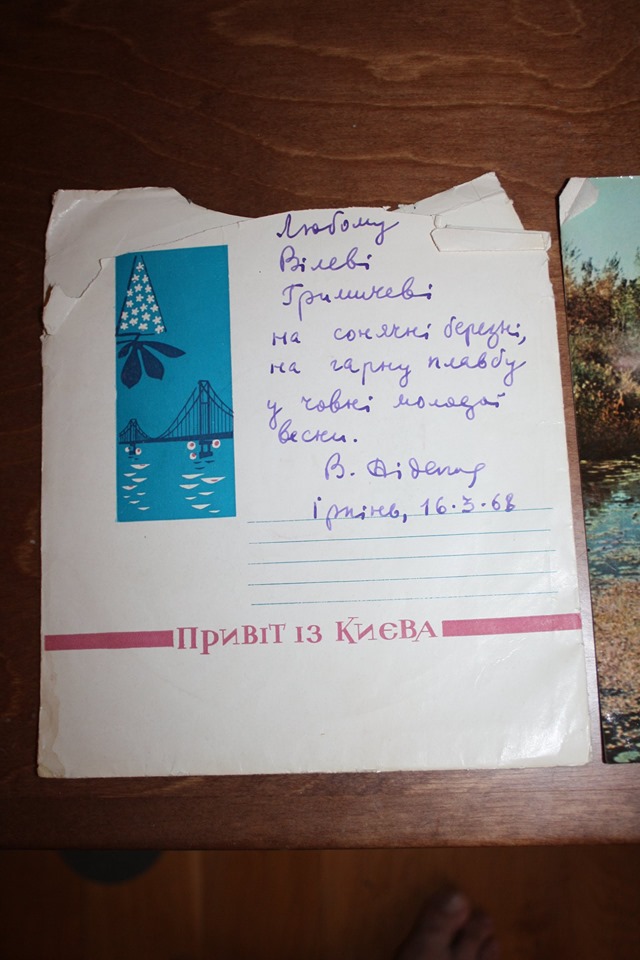 Любому
Вілеві
Гримичеві
на сонячні березні,
на гарну плавбу
у човні молодої
весни.
В. Підпалий
Ірпінь, 16.3.68
ПРИВІТ ІЗ КИЄВА